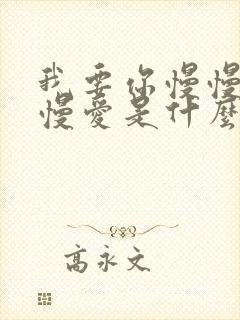 我要你慢慢
慢愛是什麼
高永文